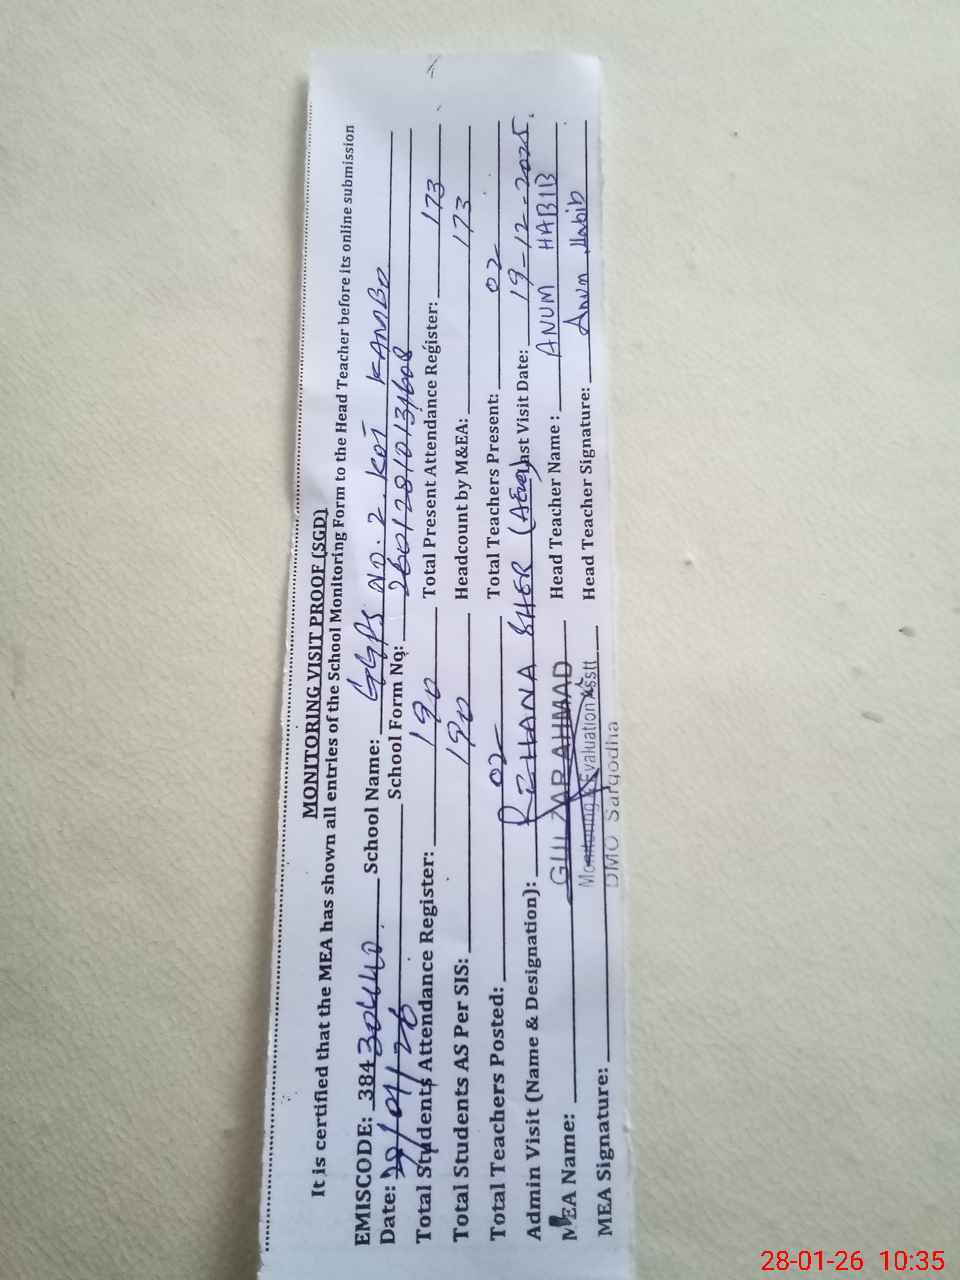 MONITORING VISIT PROOF (SGD)
It is certified that the MEA has shown all entries of the School Monitoring Form to the Head Teacher before its online submission
EMISCODE: 38430440 School Name: GGPS NO. 2. KOT KAMBO
Date: 28/01/26 School Form No: 2601281013A608
Total Students Attendance Register: 190 Total Present Attendance Register: 173
Total Students AS Per SIS: 190 Headcount by M&EA: 173
Total Teachers Posted: 02 Total Teachers Present: 02
Admin Visit (Name & Designation): REHANA SHER (AEO) Last Visit Date: 19-12-2025.
MEA Name: GULZAR AHMAD Head Teacher Name: ANUM HABIB
Monitoring & Evaluation Asstt
MEA Signature: Head Teacher Signature: Anum Habib
DMO Sargodha
28-01-26 10:35